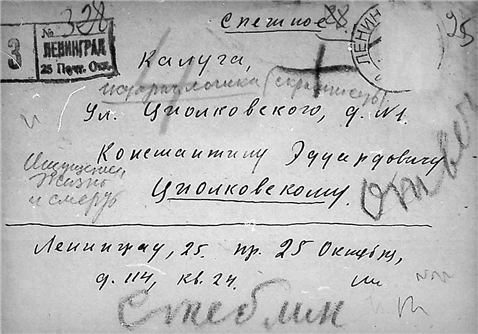 Спешное 88
25
№ 328
З
ЛЕНИНГРАД
25 Почт. Отд.
ЛЕНИН
Калуга,
Ул. Циолковского, д. №1.
Константину Эдуардовичу
Циолковскому.
Ощущения
Жизнь
и смерть
Ленинград, 25. пр. 25 Октября,
д. 114, кв. 24.
Стеблин